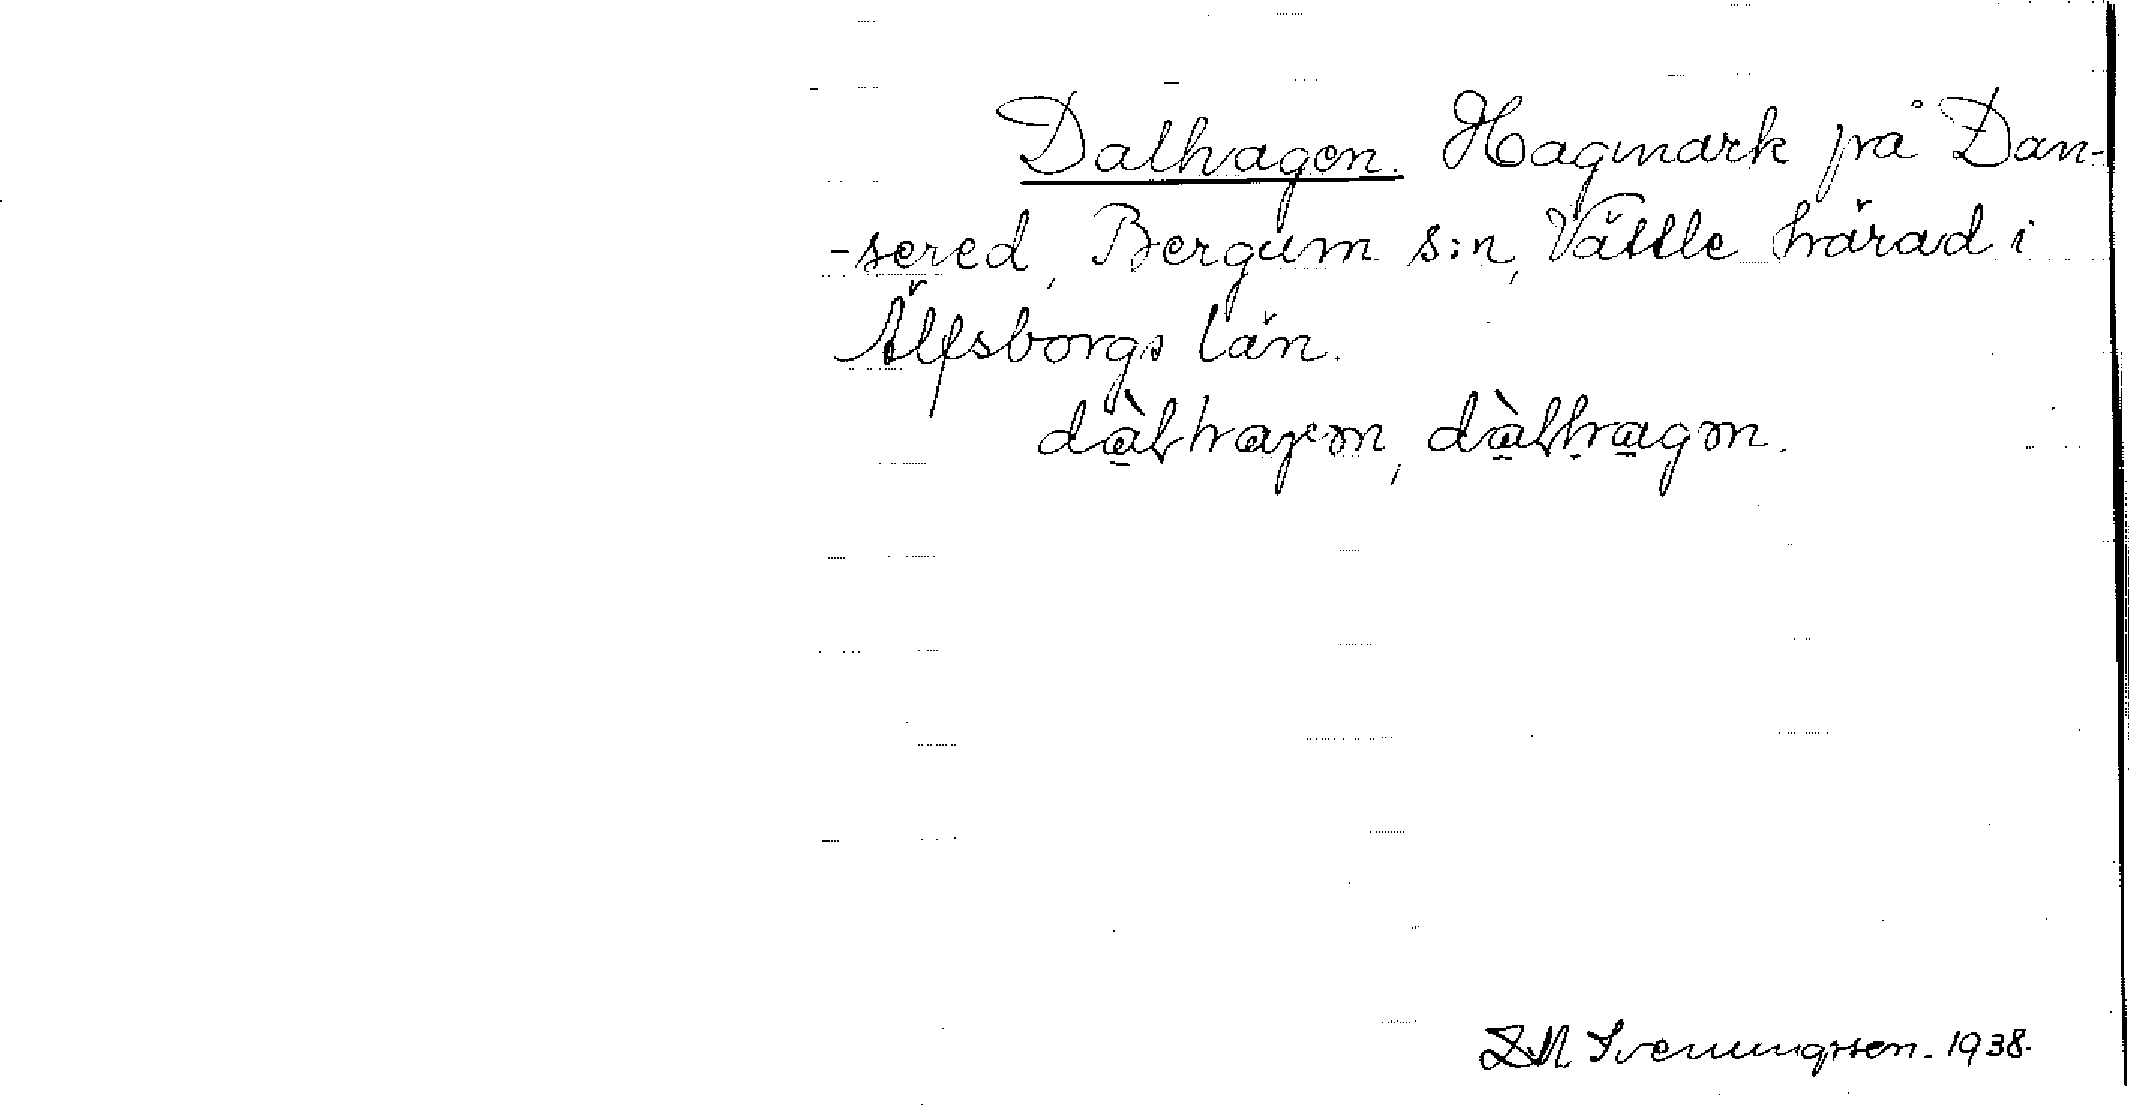 Dalhagen. Hagmark på Dan-
-sered, Bergum s:n, Vättle härad i
Älfsborgs län.
dàlhagen, dàlhagən.
Svenungsson. 1938.